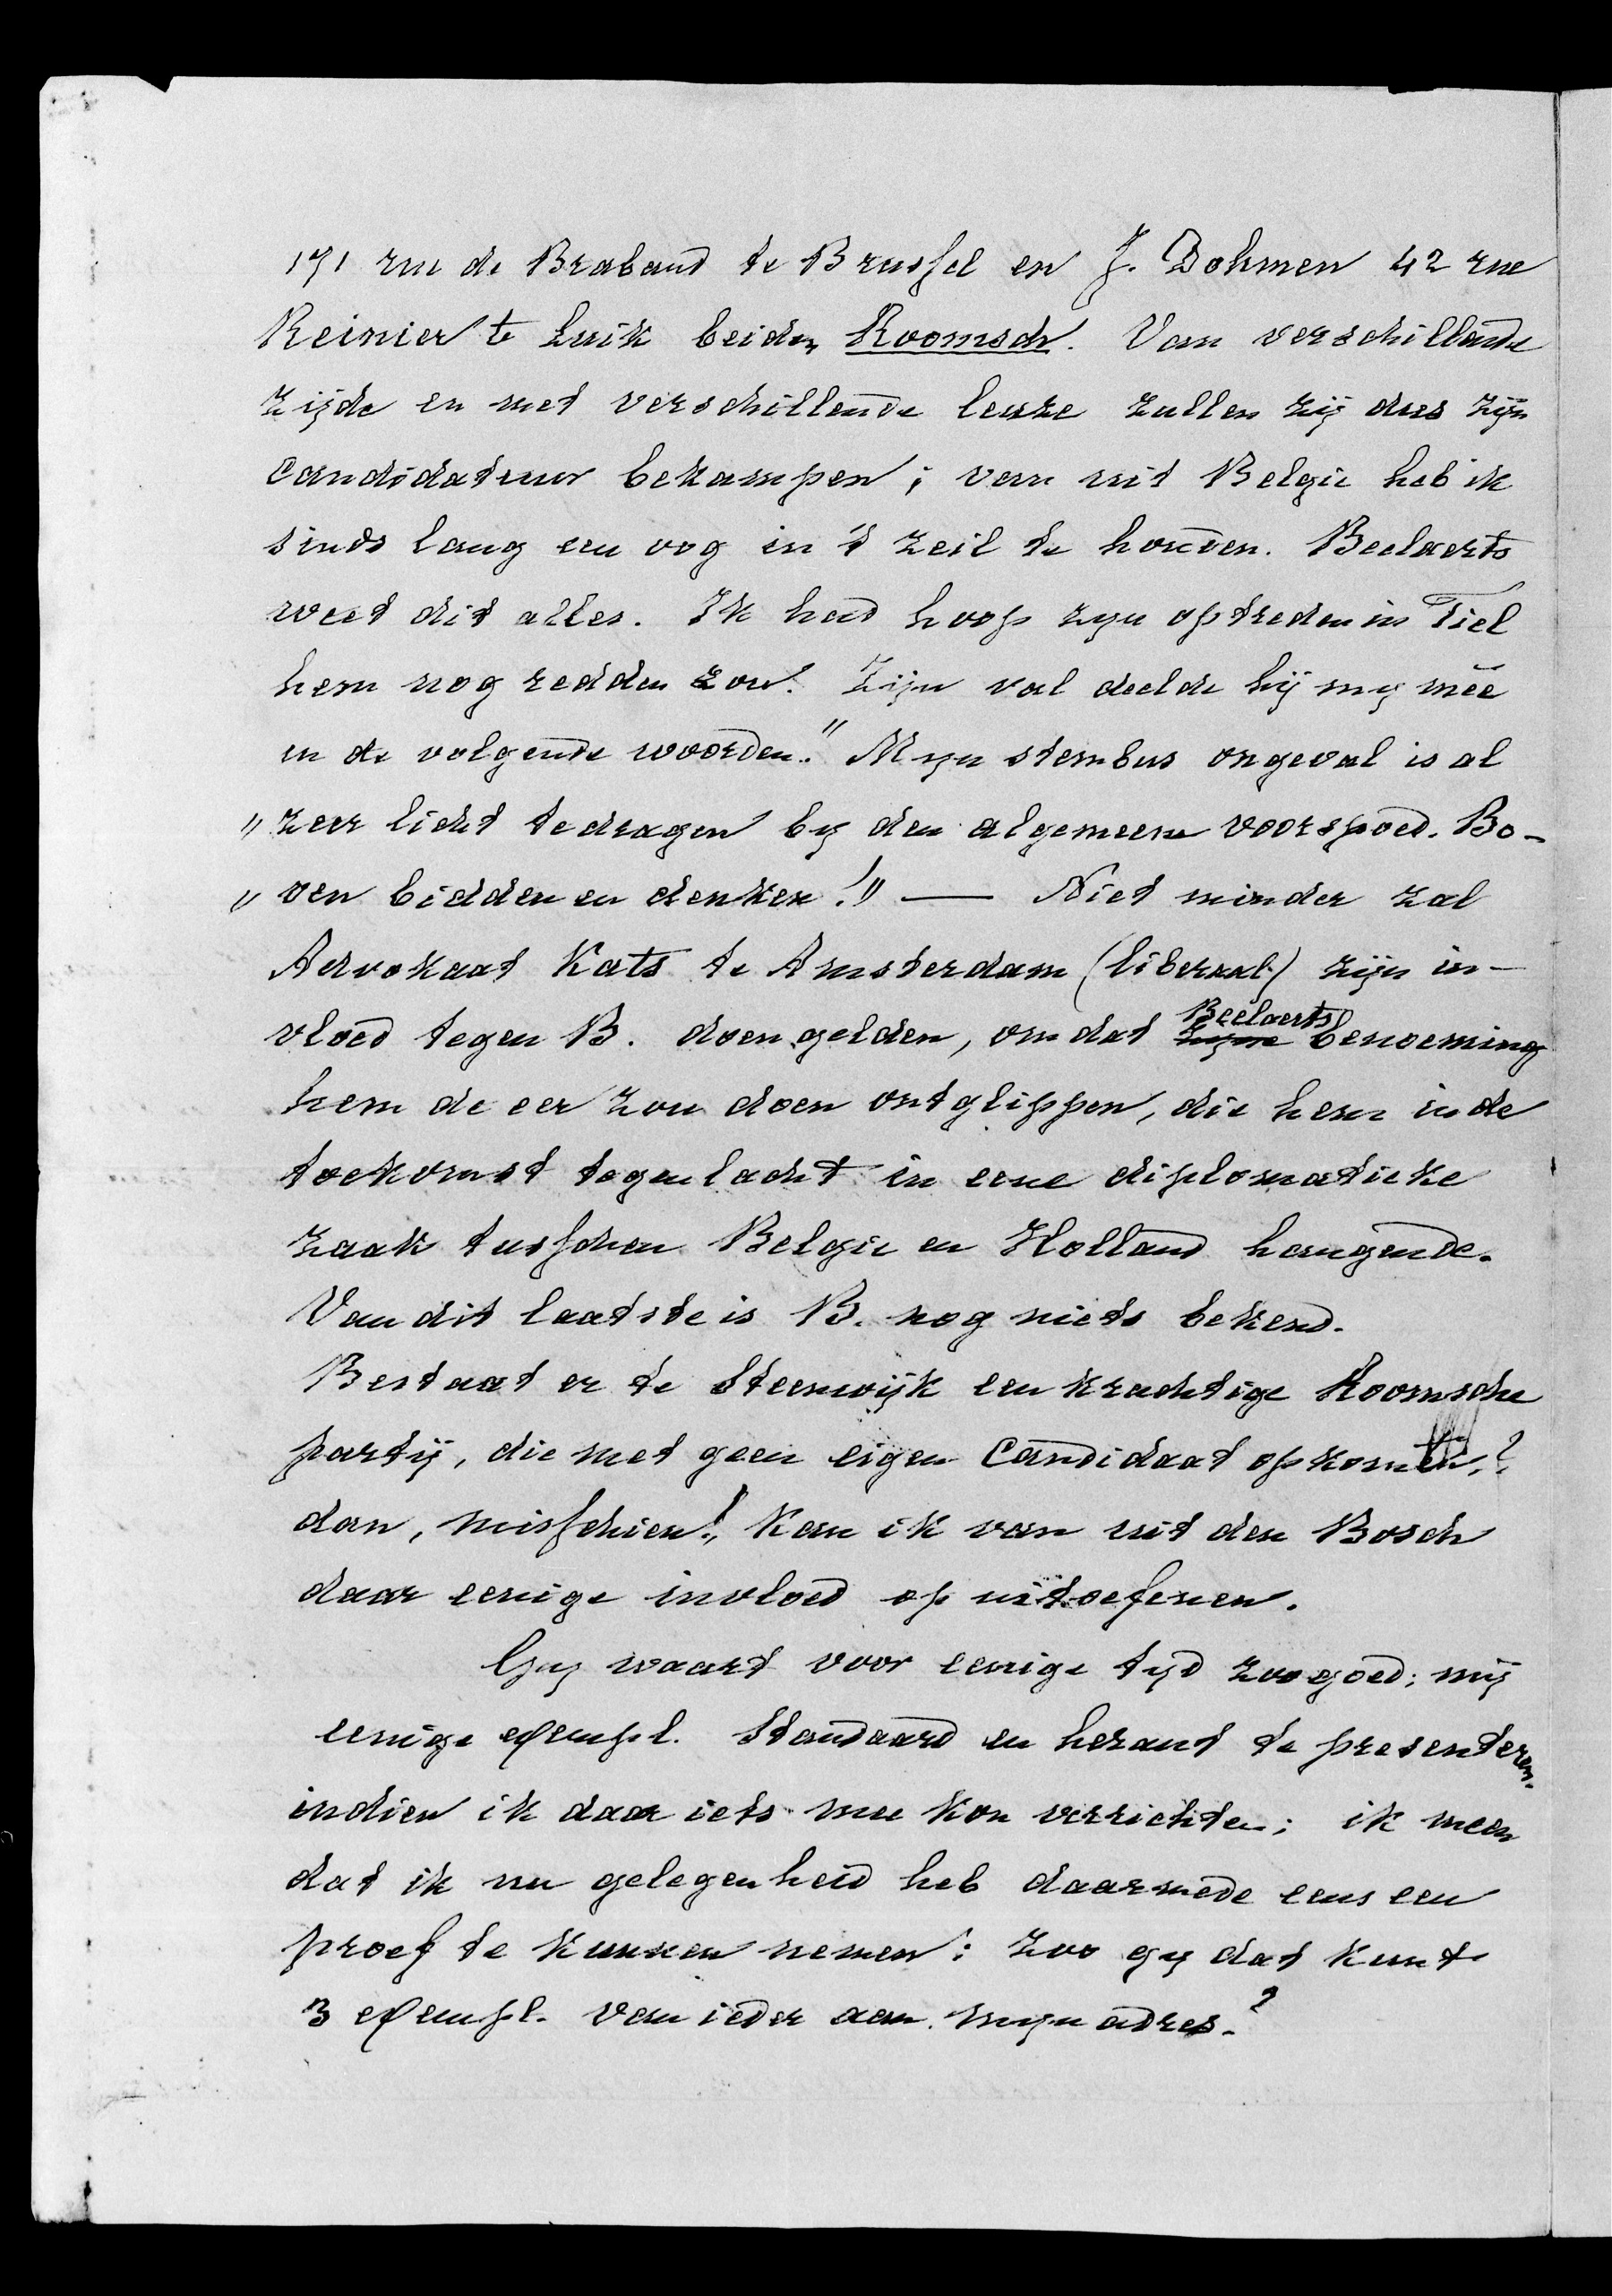 171 rue de Braband te Brussel en J. Dohmen 42 rue
Reinier te Luik beiden Roomsch. Van verschillende
zijde en met verschillende leuze zullen zij dus zijn
Candidatuur bekampen; van uit Belgie heb ik
sinds lang een oog in 't zeil te houden. Beelaerts
weet dit alles. Ik had hoop zyn optreden in Tiel
hem nog redden zou. Zijn val deelde hij my mêe
in de volgende woorden." Myn stembus ongeval is al
" zeer licht te dragen by den algemeene voorspoed. Bo-
" ven bidden en denken!" — Niet minder zal
Advokaat Kats te Amsterdam (liberaal) zijn in-
vloed tegen B. doen gelden, om dat Beelaerts benoeming
hem de eer zou doen ontglippen, die hem in de
toekomst tegenlacht in eene diplomatieke
zaak tusschen Belgie en Holland hangende.
Van dit laatste is B. nog niets bekend.
Bestaat er te Steenwijk een krachtige Roomsche
partij, die met geen eigen Candidaat opkomt,?
dan, misschien!, kan ik van uit den Bosch
daar eenige invloed op uitoefenen.
Gy waart voor eenige tyd zoo goed; mij
eenige exempl. Standaard en heraut te presenteren.
indien ik daar iets mee kon verrichten; ik meen
dat ik nu gelegenheid heb daarmede eens een
proef te kunnen nemen: zoo gy dat kunt
3 exempl. van ieder aan myn adres.?